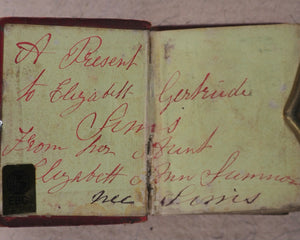 A Present
to Elizabeth Gertrude
Sims
From her Aunt
Elizabeth Ann Sumnor
nee Sims